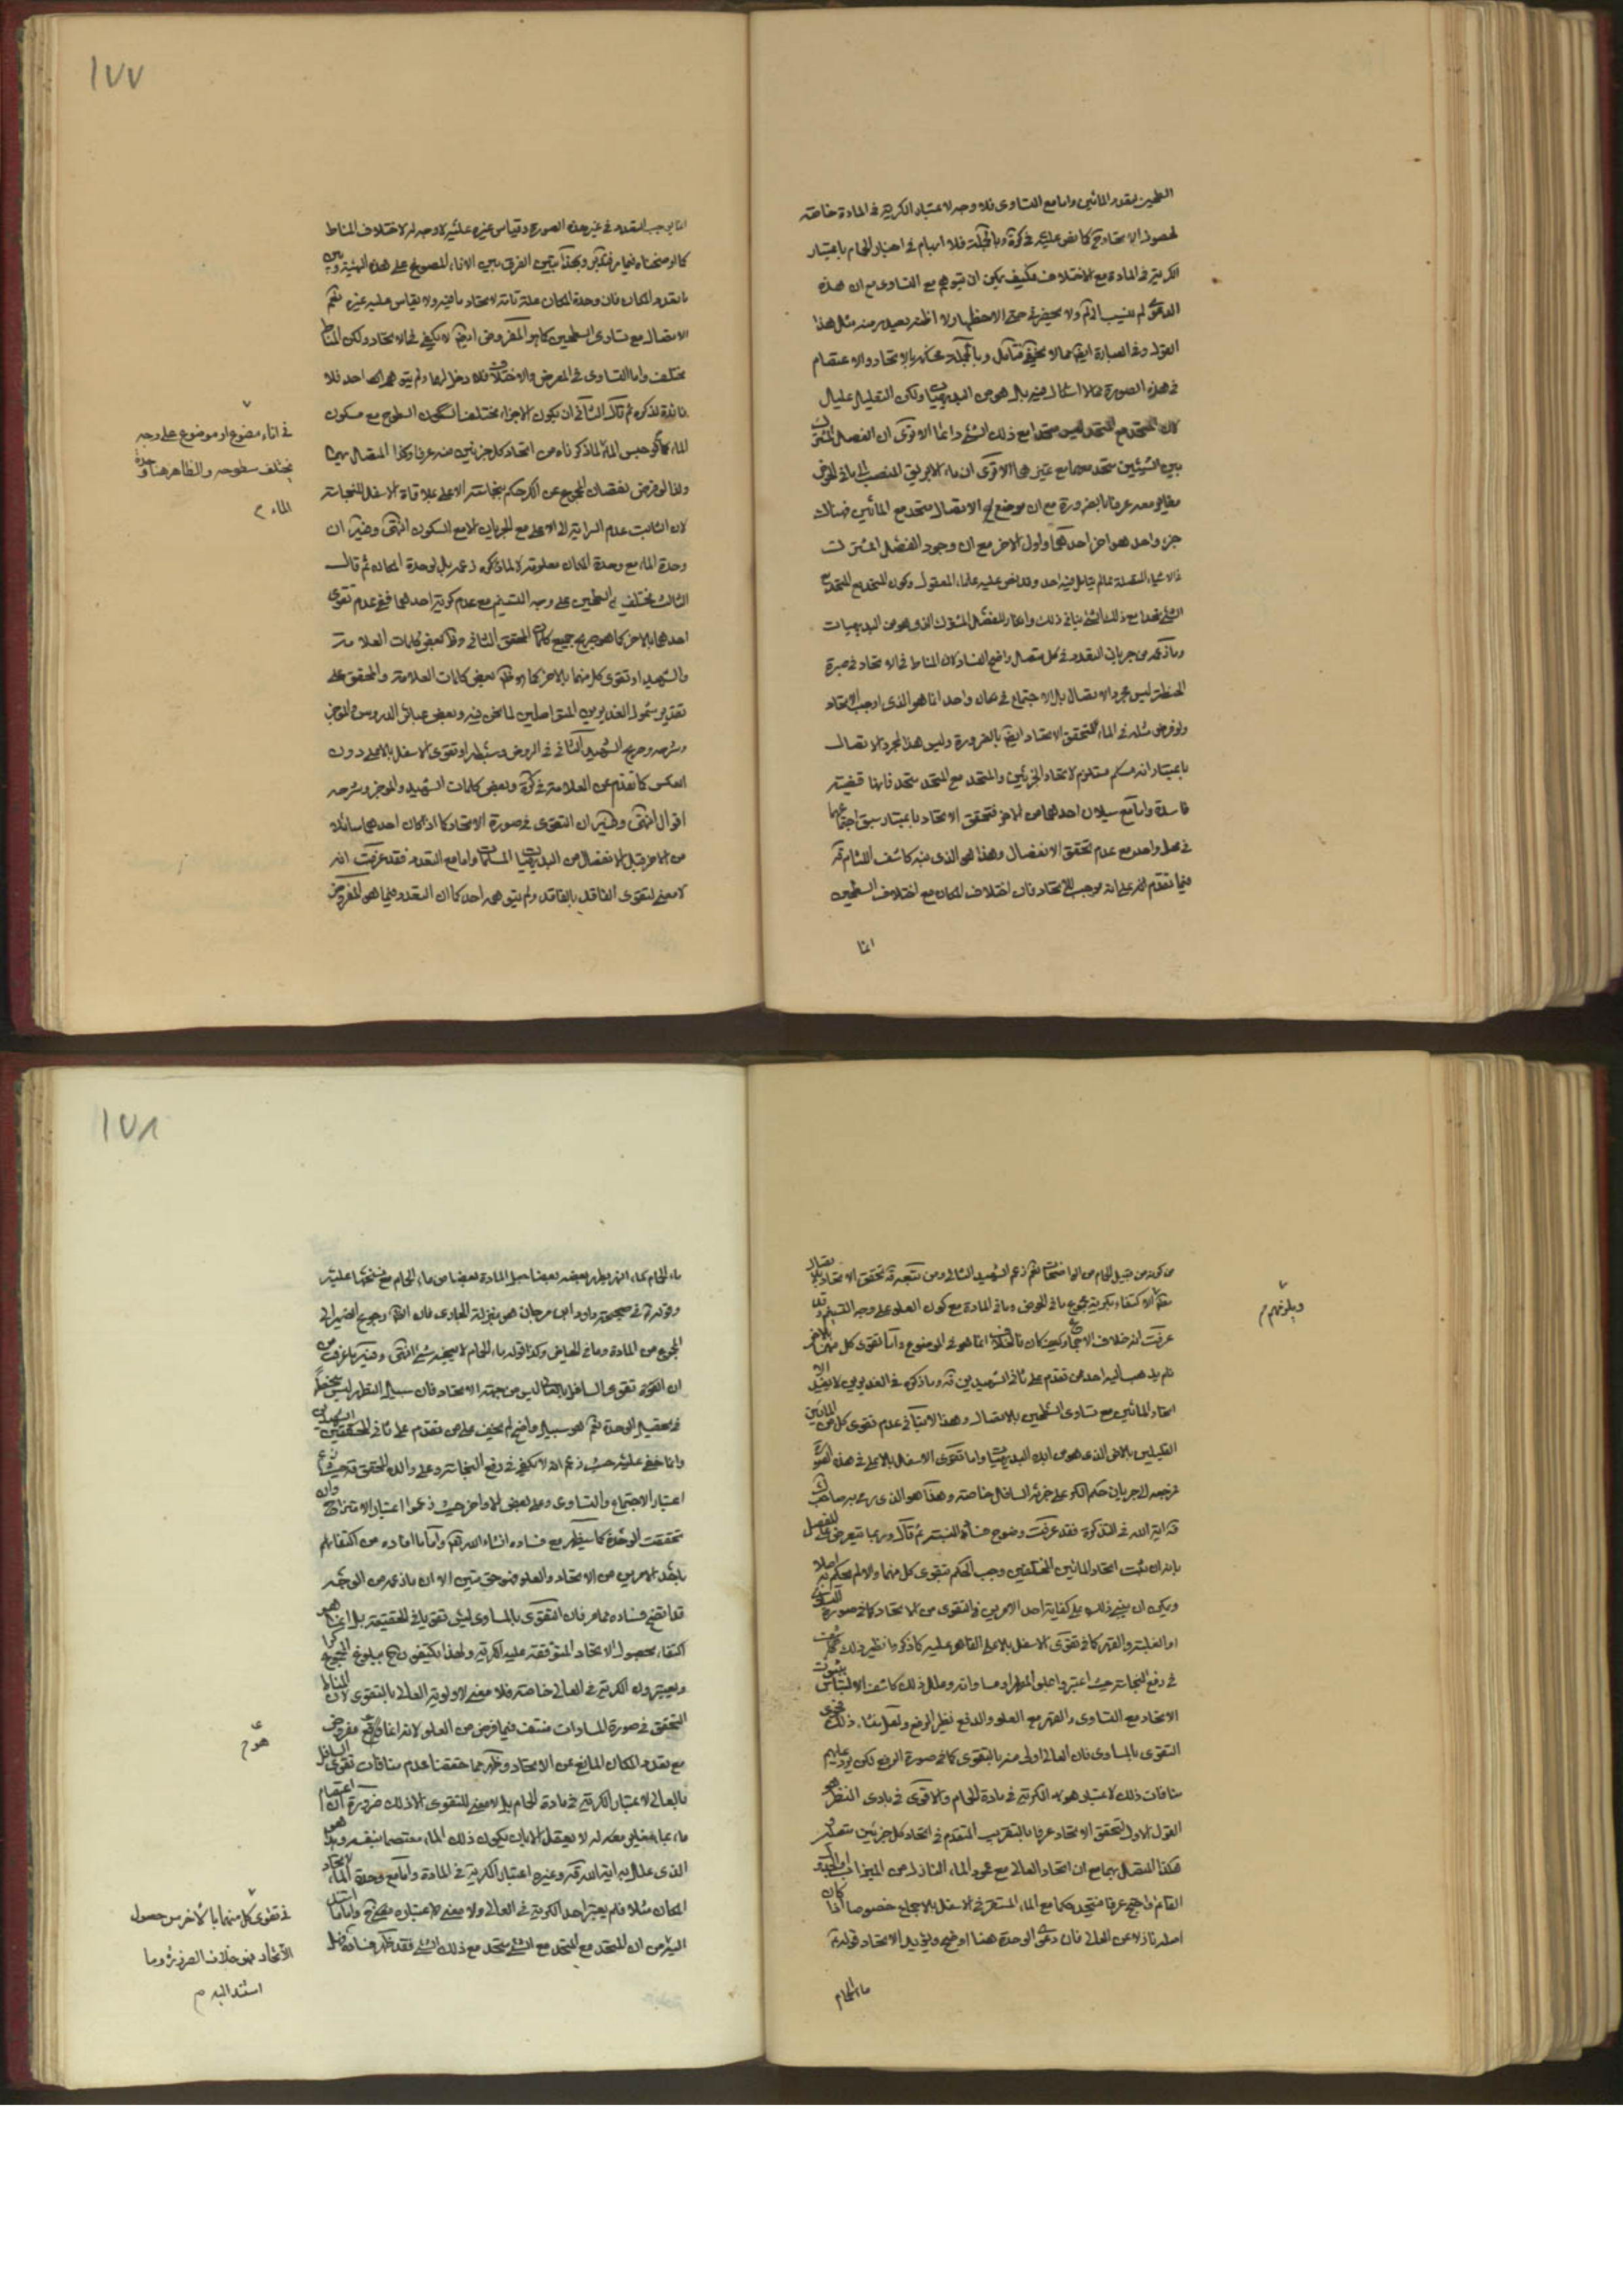 السطحين بتعدد المائين واما مع التساوى فلا وجه لاعتبار الكرية فى المادة خاصة
لحصول الاتحاد ح كما نص عليه فى كرة وبالجملة فلا ابهام فى اخبار الحمام باعتبار
الكرية فى المادة مع الاختلاف فكيف يمكن ان يتوهم مع التساوى مع ان هذه
الدعوى لم تنسب الى ولا يحضرنى حتى الاحظها ولا اظن بعيد منه مثل هذا
القول وفى العبارة ايضا ما لا يخفى على متأمل وبالجملة فحكمه بالاتحاد والاعتصام
فى هذه الصورة مما لا اشكال فيه بل هو من البديهيات ولكن التعليل عليل
لان المتحد مع المتحد ليس متحدا مع ذلك الشئ دائما الا ترى ان الفصل المشترك
بين الشيئين متحد معهما مع تميزهما الا ترى ان ماء الابريق المنصب الى ما فى الحوض
مغاير معه عرفا بالضرورة مع ان موضع الاتصال متحد مع المائين فهناك
جزء واحد هو اخر احدهما واول الاخر مع ان وجود الفصل المشترك
فى الاشياء المتصلة مما لم يتأمل فيه احد وقد نص عليه علماء المعقول وكون المتحد مع المتحد مع
الشئ متحدا مع ذلك الشئ ينافى ذلك وانكار للفصل المشترك الذى هو من البديهيات
وما ذكره من جريان التعدد فى كل متصل واضح الفساد لان المناط فى الاتحاد فى صبرة
الحنطة ليس مجرد الاتصال بل الاجتماع فى مكان واحد انما هو الذى اوجب الاتحاد
ولو فرض مثله فى الماء لتحقق الاتحاد ايضا بالضرورة وليس هذا لمجرد الاتصال
باعتبار انه مستلزم لاتحاد الجزئين والمتحد مع المتحد متحد فانها قضية
فاسدة واما مع سيلان احدهما من الاخر فتحقق الاتحاد باعتبار سبق اجتماعهما
فى محل واحد مع عدم تحقق الانفصال وهذا هو الذى نبه كاشف اللثام قه
فيما تقدم على انه موجب للاتحاد فان اختلاف المكان مع اختلاف السطحين
انما
١٧٧
انما يوجب التعدد فى غير هذه الصورة وقياس غيره عليه لا وجه له لاختلاف المناط
كما اوضحناه فيما مر فتدبر وبهذا يتبين الفرق بين الاناء المصوغ على هذه الهيئة وبين
تعدد المكان فان وحدة المكان علة تامة لاتحاد ما فيه ولا يقاس عليه غيره نعم
الاتصال مع تساوى السطحين كما هو المفروض ايضا لا يكفى فى الاتحاد ولكن المناط
مختلف واما التساوى فى العرض والاختلاف فلا دخل لهما ولم يتوهمه احد فلا
فائدة لذكره ثم قال الثانى ان يكون الاجزاء مختلف السكون السطوح مع سكون
الماء كما لو حبس الماء لما ذكرناه من اتحاد كل جزئين منه عرفا وكذا المتصل بهما
ولذا لو فرض نقصان المجموع عن الكر حكم بنجاسة الاعلى بملاقاة الاسفل للنجاسة
لان الثابت عدم السراية الى الاعلى مع الجريان لا مع السكون انتهى وفيه ان
وحدة الماء مع وحدة المكان معلومة لا لما ذكره زعمه بل لوحدة المكان ثم قال
الثالث مختلفى السطحين على وجه التسنيم مع عدم كرية احدهما ففى عدم تقوى
احدهما بالاخر كما هو صريح جميع كلمات المحقق الثانى وظ بعض كلمات العلامة
والشهيد او تقوى كل منهما بالاخر كما هو ظ بعض كلمات العلامة والمحقق على
تقدير شمول الغديرين المتواصلين لما نحن فيه وبعض عبائر الدروس والموجز
وشرحه وصريح الشهيد الثانى فى الروض وسبطه او تقوى الاسفل بالاعلى دون
العكس كما تقدم عن العلامة فى كرة وبعض كلمات الشهيد والموجز وشرحه
اقوال انتهى وظهر ان التقوى فى صورة الاتحاد كما اذا كان احدهما سائلا
من الاخر قبل الانفصال من البديهيات المسلمات واما مع التعدد فقد عرفت انه
لا معنى لتقوى الفاقد بالفاقد ولم يتوهمه احد كما ان التعدد فيما هو المفروض
فى اناء مصوغ او موضوع على وجه
يختلف سطوحه والظاهر هنا وحدة
الماء م
من كونه من قبيل الحمام من الواضحات نعم زعم الشهيد الثانى ومن تبعه قه تحقق الاتحاد بالاتصال
معلم الاكتفاء بكرية مجموع ما فى الحوض وما فى المادة مع كون العلو على وجه التسنيم وقد
عرفت انه خلاف الاجماع وكيف كان فالخلاف انما هو فى الموضوع واما تقوى كل منهما بالاخر
فلم يذهب اليه احد ممن تقدم على ثانى الشهيدين قه وما ذكره فى الغديرين لا يفيد الا
اتحاد المائين مع تساوى السطحين بالاتصال وهذا لا ينافى عدم تقوى كل من المائين
القليلين بالاخر الذى هو من ابده البديهيات واما تقوى الاسفل بالاعلى فى هذه الصورة
فمرجعه الى جريان حكم الكر على جزئه السافل خاصة وهذا هو الذى رمى به صاحب
قه اية الله فى التذكرة فقد عرفت وضوح فساد النسبة ثم قال وربما يتعرض على المفصل
بانه ان ثبت اتحاد المائين المختلفين وجب الحكم بتقوى كل منهما والا لم يحكم به اصلا
ويمكن ان يبنى ذلك على كفاية احد الامرين فى التقوى من الاتحاد كما فى صورة التساوى
او الغلبة والقهر كما فى تقوى الاسفل بالاعلى القاهر عليه كما ذكروا نظير ذلك
فى دفع النجاسة حيث اعتبروا علو المطهر او مساواته وعلل ذلك كاشف الالتباس بثبوت
الاتحاد مع التساوى والقهر مع العلو والدفع نظير الرفع ولعل منشأ ذلك فحوى
التقوى بالمساوى فان العالى اولى منه بالتقوى كما فى صورة الرفع لكن يرد عليهم
منافات ذلك لاعتبار هؤلاء الكرية فى مادة الحمام والاقوى فى بادى النظر هو
القول الاول لتحقق الاتحاد عرفا بالتقريب المتقدم فى اتحاد كل جزئين متصلين
هكذا المتصل بهما مع ان اتحاد العالى مع عمود الماء النازل من الميزاب او الحبة
القائم واضح عرفا فتحد حكما مع الماء المستقر فى الاسفل بالاجماع خصوصا اذا كان
اصله نازلا عن العالى فان دعوى الوحدة هنا اوضح ويؤيد الاتحاد قوله ع
ماء الحمام
وبلوغهم م
١٧٨
ماء الحمام كماء النهر يطهر بعضه بعضا جعل المادة بعضا من ماء الحمام مع تسنمها عليه
وقوله ع فى صحيحة داود ابن سرحان هو بمنزلة الجارى فان الظ رجوع الضمير الى
المجموع من المادة وما فى الحياض وكذا قوله ماء الحمام لا ينجسه شئ انتهى وفيه ما عرفت من
ان القوة تقوى السافل بالعالى ليس من جهة الاتحاد فان سبيل التطهر ليس منحصرا
فى تحصيل الوحدة نعم هو سبيل واضح لم يخف على من تقدم على ثانى المحققين الشهيدين
وانما خفى عليه حيث زعم انه لا يكفى فى رفع النجاسة وعلى والد المحقق قه حيث زعم
اعتبار الاجتماع والتساوى وعلى بعض الاواخر حيث زعموا اعتبار الامتزاج وان
تحققت الوحدة كما سيظهر مع فساده انشاء الله تعالى واما ما افاده من اكتفائهم
باحد الامرين من الاتحاد والعلو فهو حق متين الا ان ما ذكره من الوجه
قد اتضح فساده مما مر فان التقوى بالمساوى ليس تقويا فى الحقيقة بل انما هو
اكتفاء بحصول الاتحاد المتوقفة عليه الكرية ولهذا يكتفون ح ببلوغ المجموع كرا
ويعتبرون الكرية فى العالى خاصة فلا معنى لاولوية العالى بالتقوى لان المناط
المتحقق فى صورة المساوات منتف فيما فرض من العلو لانه انما وقع مفروض
مع تعدد المكان المانع عن الاتحاد وظهر مما حققنا عدم منافات تقوى السافل
بالعالى لاعتبار الكرية فى مادة الحمام بل لا معنى للتقوى الا ذلك ضرورة ان اعتصام
ماء بماء مغاير معه له لا يعقل الا بان يكون ذلك الماء معتصما بنفسه وهو
الذى علل به اية الله قه وغيره اعتبار الكرية فى المادة واما مع وحدة الماء لاتحاد
المكان مثلا فلم يعتبر احد الكرية فى العالى ولا معنى لاعتباره فيه ح واما ما استند
اليه من ان المتحد مع المتحد مع الشئ متحد مع ذلك الشئ فقد ظهر فساده قبل
هو م
فى تقوى كل منهما بالاخر من حصول
الاتحاد فهو خلاف الضرورة وما
استند اليه م